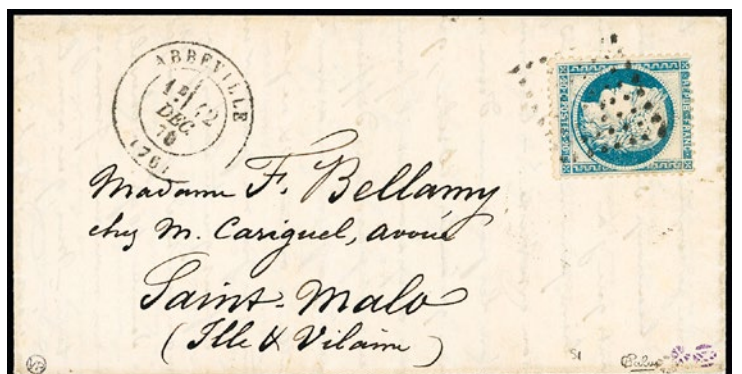 ABBEVILLE
1E
12
DEC.
70
(76)
REPUB. FRANC.
POSTES
Madame F. Bellamy
chez M. Cariguel, avoué
Saint-Malo
(Ille & Vilaine)